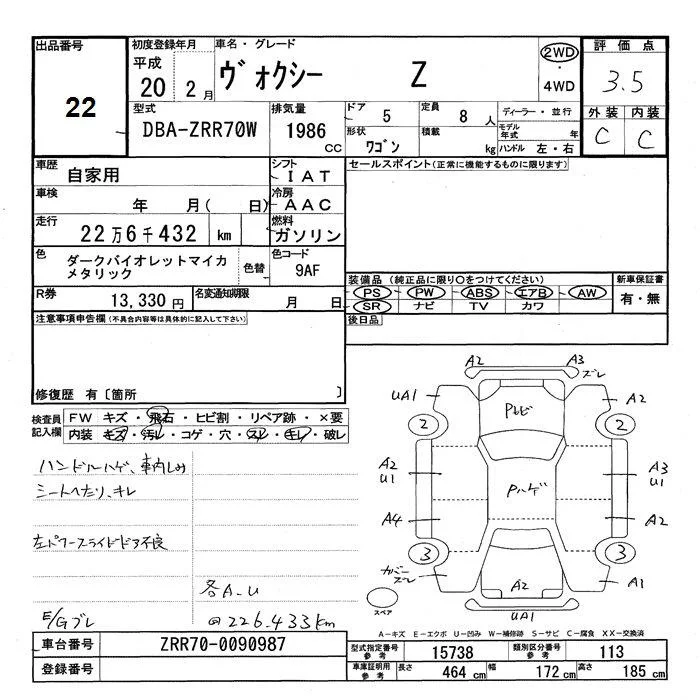 出品番号 初度登録年月 車名・グレード 2WD 評価点
平成 ヴォクシー Z ・ 3.5
22 20 2月 4WD 外装 内装
型式 排気量 ドア 5 定員 8人 ディーラー・並行 C C
DBA-ZRR70W 1986cc 形状 ワゴン 積載 kg モデル年式 年 ハンドル 左・右
車歴 自家用 シフト IAT セールスポイント(正常に機能するものに限ります)
車検 年 月( 日) 冷房 AAC
走行 22万6千432 km 燃料 ガソリン
色 ダークバイオレットマイカ 色替 色コード 9AF
メタリック
装備品(純正品に限り○をつけてください) 新車保証書
R券 13,330円 名変通知期限 月 日 PS PW ABS エアB AW 有・無
SR ナビ TV カワ
注意事項申告欄(不具合内容等は具体的に記入して下さい) 後日品
修復歴 有〔箇所 〕
検査員 FW キズ・飛石・ヒビ割・リペア跡・×要
記入欄 内装 キズ・汚レ・コゲ・穴・スレ・キレ・破レ
ハンドルハゲ、車内しみ
シートへたり、キレ
左パワースライドドア不良
各A-U
E/Gブレ @226,433km
A2 A3 ズレ
UA1 A2
2 Pトビ 2
A2 A3
U1 Pハゲ U1
A4 A2
3 3
カバーズレ A2 A1
スペア UA1
A-キズ E-エクボ U-凹み W-補修跡 S-サビ C-腐食 XX-交換済
車台番号 ZRR70-0090987 型式指定番号 参考 15738 類別区分番号 参考 113
登録番号 車庫証明用 参考 長さ 464cm 幅 172cm 高さ 185cm